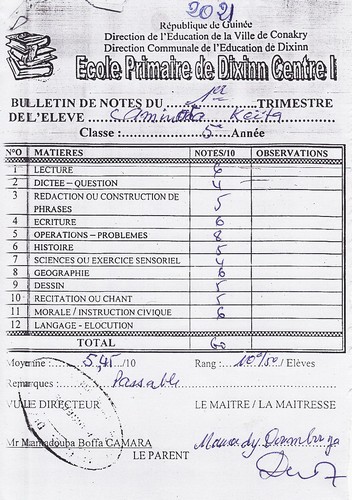 2021
République de Guinée
Direction de l'Education de la Ville de Conakry
Direction Communale de l'Education de Dixinn
Ecole Primaire de Dixinn Centre I
BULLETIN DE NOTES DU 1er TRIMESTRE
DE L'ELEVE Keita
Classe : 5e Année
N°O MATIERES NOTES/10 OBSERVATIONS
1 LECTURE 6
2 DICTEE – QUESTION 4
3 REDACTION OU CONSTRUCTION DE PHRASES 5
4 ECRITURE 6
5 OPERATIONS – PROBLEMES 8
6 HISTOIRE 5
7 SCIENCES OU EXERCICE SENSORIEL 4
8 GEOGRAPHIE 6
9 DESSIN 5
10 RECITATION OU CHANT 5
11 MORALE / INSTRUCTION CIVIQUE 6
12 LANGAGE - ELOCUTION
TOTAL 60
Moyenne : 5,45 /10 Rang : 10e/50 / Elèves
Remarques : Passable
VU LE DIRECTEUR LE MAITRE / LA MAITRESSE
Mr Mamadouba Boffa CAMARA
LE PARENT